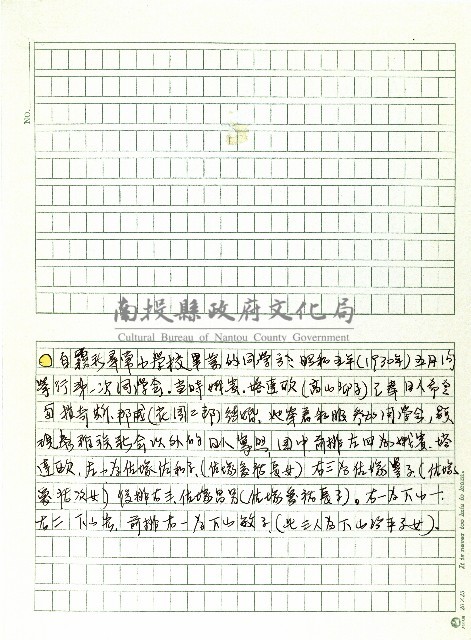 NO.
南投縣政府文化局
Cultural Bureau of Nantou County Government
自霧社尋常小學校畢業的同學於昭和五年(1930年)五月間
舉行第一次同學会,當時娥賓.塔達歐(高山初子)已奉日人命令
與獵奇斯.那威(花岡二郎)結婚.她穿着和服參加同學会,顯
現泰雅族社会以外的日人.圖中前排左四為娥賓.塔
達歐.左二為佐塚佐和子,(佐塚愛祐長女)右三為佐塚豐子(佐塚
愛祐次女)後排右三佐塚昌男(佐塚愛祐長子)。右一為下山一
右二下山宏.前排右一為下山敏子(此三人為下山治平子女)。